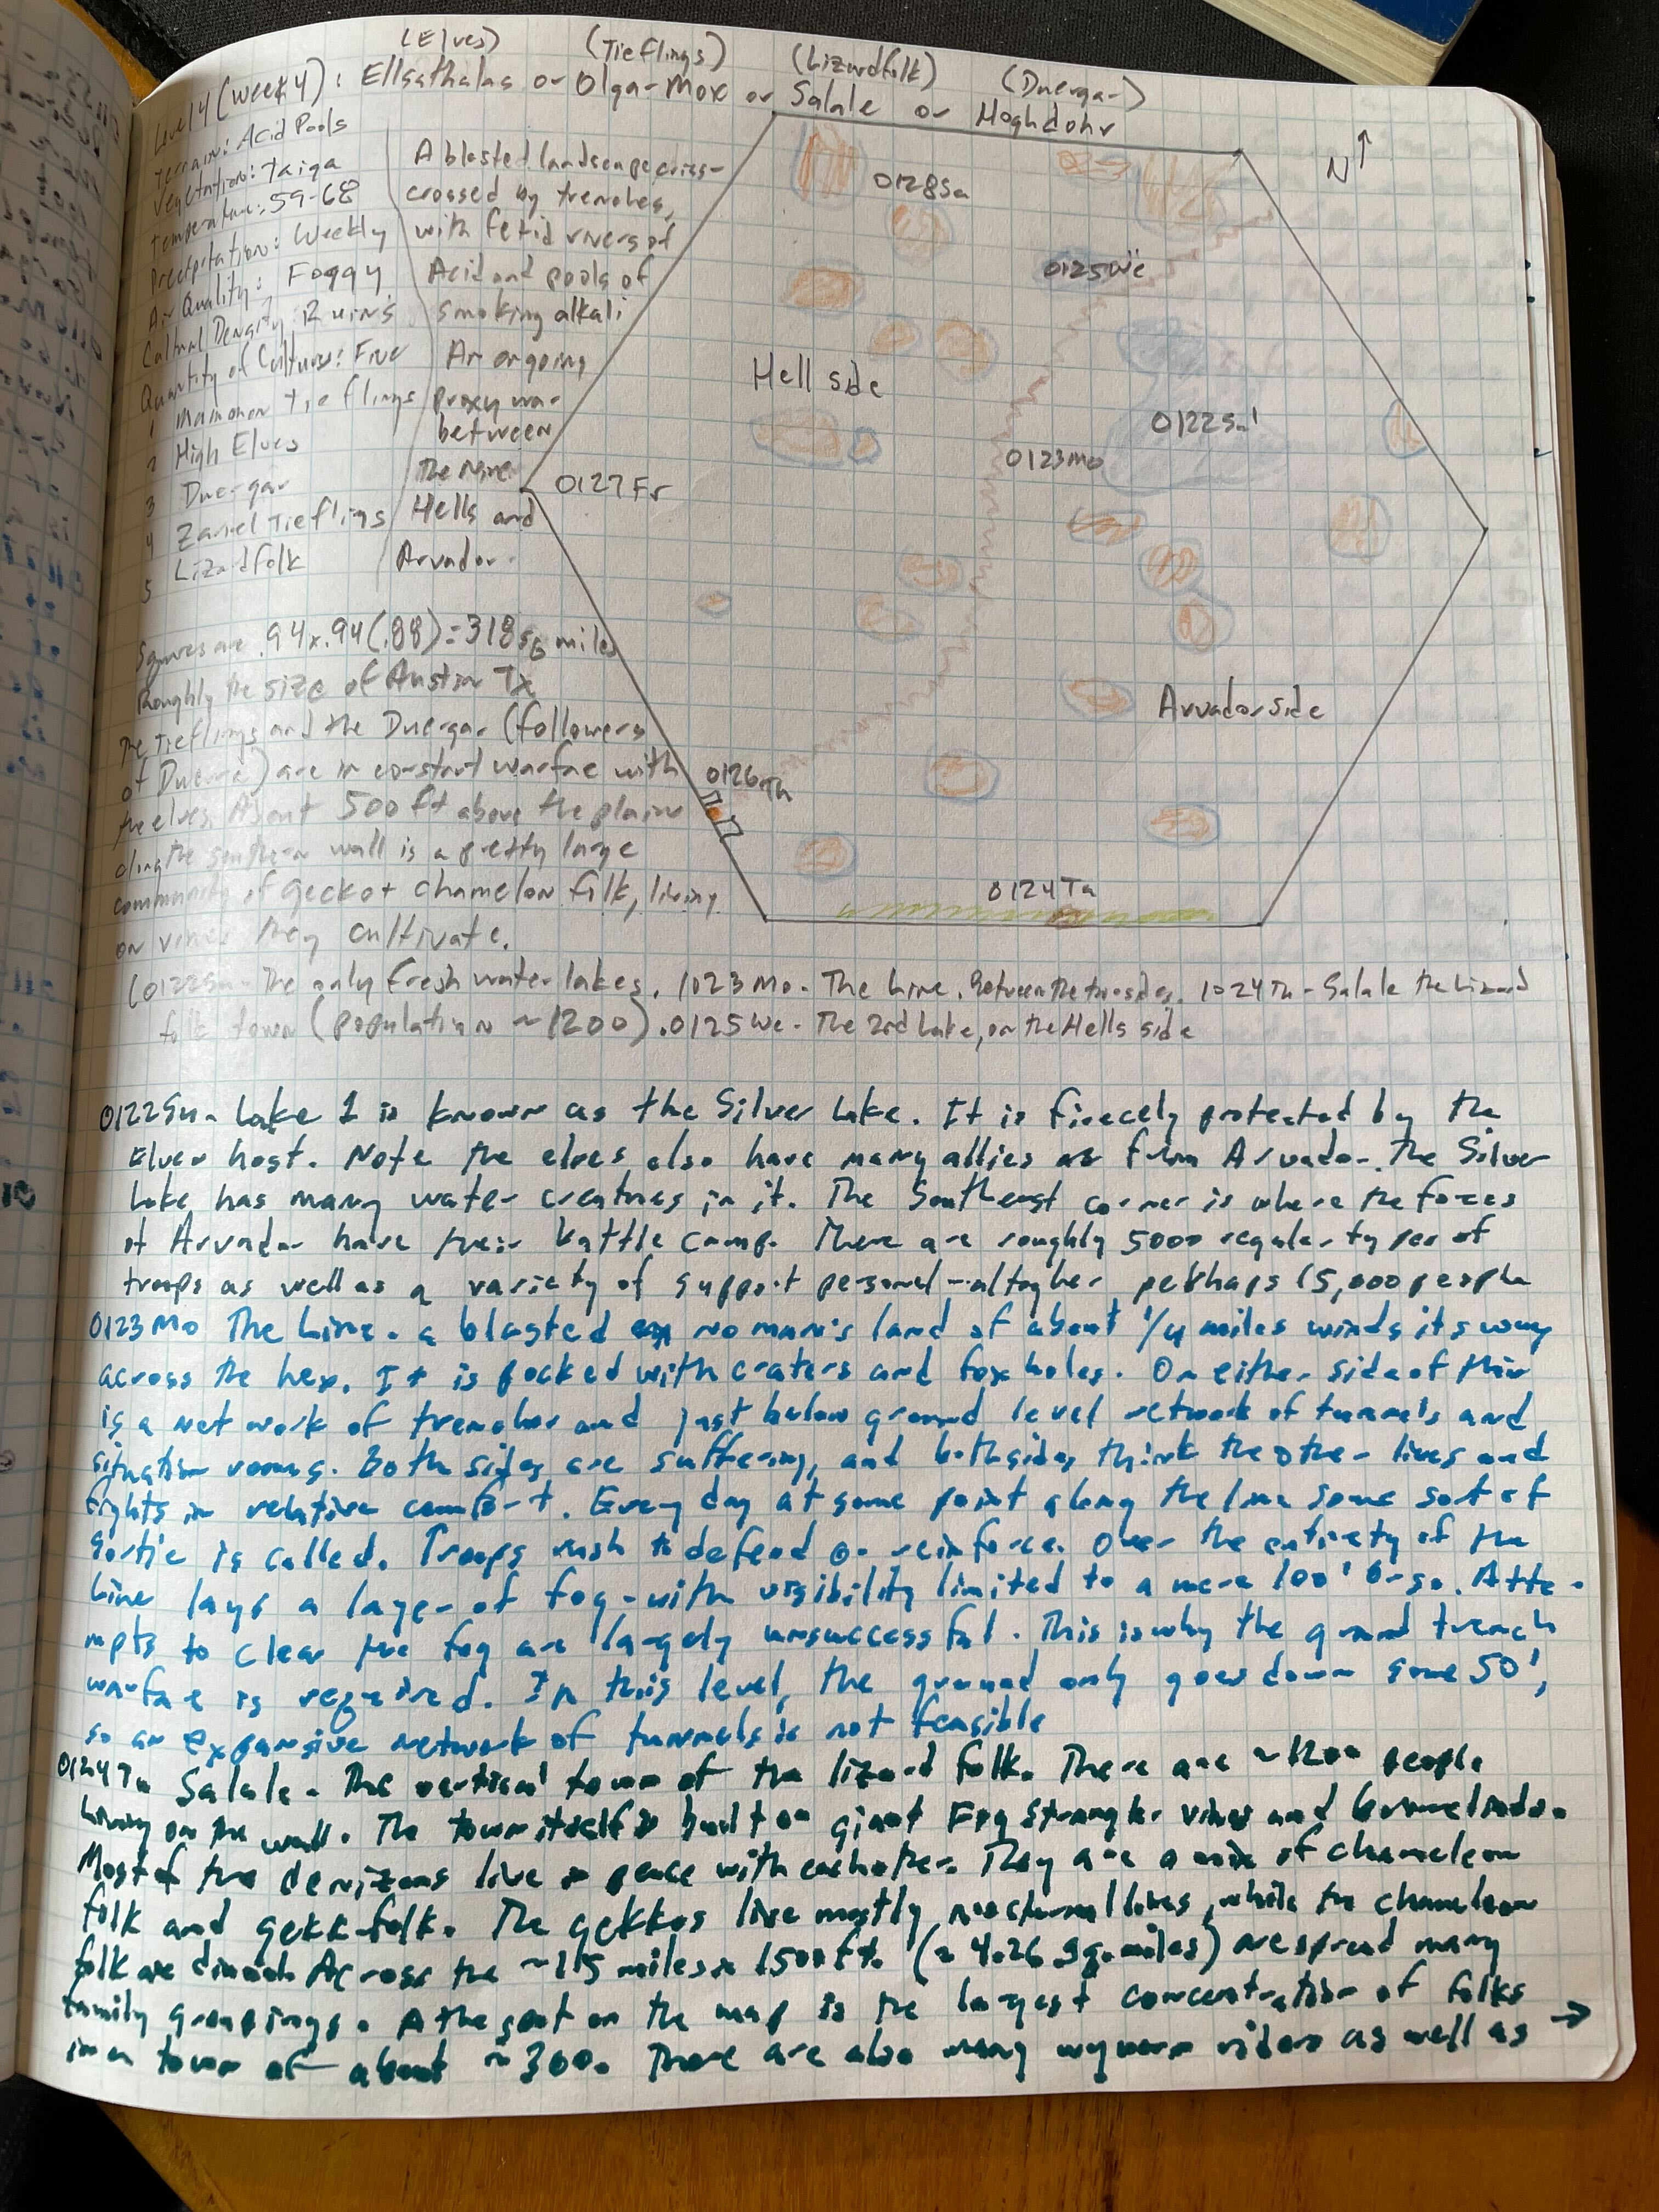 (Elves) (Tieflings) (Lizardfolk) (Duergar)
Level 4 (week 4): Ellsathalas or Olga-Mox or Salale or Hoghdohr
Terrain: Acid Pools
Vegetation: Taiga
Temperature: 59-68
Precipitation: Weekly
Air Quality: Foggy
Cultural Density: Ruins
Quantity of Cultures: Five
1 Mammon Tieflings
2 High Elves
3 Duergar
4 Zariel Tieflings
5 Lizardfolk
A blasted landscape criss-
crossed by trenches,
with fetid rivers of
Acid and pools of
smoking alkali
An ongoing
proxy war
between
the Nine
Hells and
Arvador.
N
0128Sa
0125We
Hell side
0122Su
0123Mo
0127Fr
Arvador side
0126Th
0124Tu
Squares are .94x.94(.88)=318 sq miles
Roughly the size of Austin Tx
The Tieflings and the Duergar (followers
of Duerra) are in constant warfare with
the elves. About 500 ft above the plains
along the southern wall is a pretty large
community of gecko + chamelon folk, living
on vines they cultivate.
(0122Su- The only fresh water lakes. 1023Mo- The Line. Between the two sides. 1024Tu- Salale the Lizard
folk town (population ~1200). 0125We- The 2nd Lake, on the Hells side
0122Su- Lake 1 is known as the Silver Lake. It is fircely protected by the
Elven host. Note the elves also have many allies as from Arvador. The Silver
Lake has many water creatures in it. The Southeast corner is where the forces
of Arvador have their battle camp. There are roughly 5000 regular types of
troops as well as a variety of support personel - altogher perhaps 15,000 people
0123Mo The Line. a blasted no man's land of about 1/4 miles winds its way
across the hex. It is pocked with craters and fox holes. On either side of this
is a network of trenches and just below ground level network of tunnels and
situation rooms. Both sides are suffering, and both sides think the other lives and
fights in relative comfort. Every day at some point along the line some sort of
sortie is called. Troops rush to defend or reinforce. Over the entirety of the
Line lays a layer of fog - with visibility limited to a mere 100' or so. Atte-
mpts to clear the fog are largely unsuccessful. This is why the ground trench
warfare is required. In this level, the ground only goes down some 50',
so an expansive network of tunnels is not feasible
0124Tu Salale. The vertical town of the lizard folk. There are ~1200 people
living on the wall. The town itself is built on giant Fig Strangler vines and bromeliads.
Most of the denizens live in peace with each other. They are a mix of chameleon
folk and gekk-folk. The gekkos live mostly nocturnal lives, while the chameleon
folk are diurnal. Across the ~15 miles x 1500 ft. (≈ 4.26 sq. miles) are spread many
family groupings. A the spot on the map is the largest concentration of folks
in a town of about ~300. There are also many wyvern riders as well as →